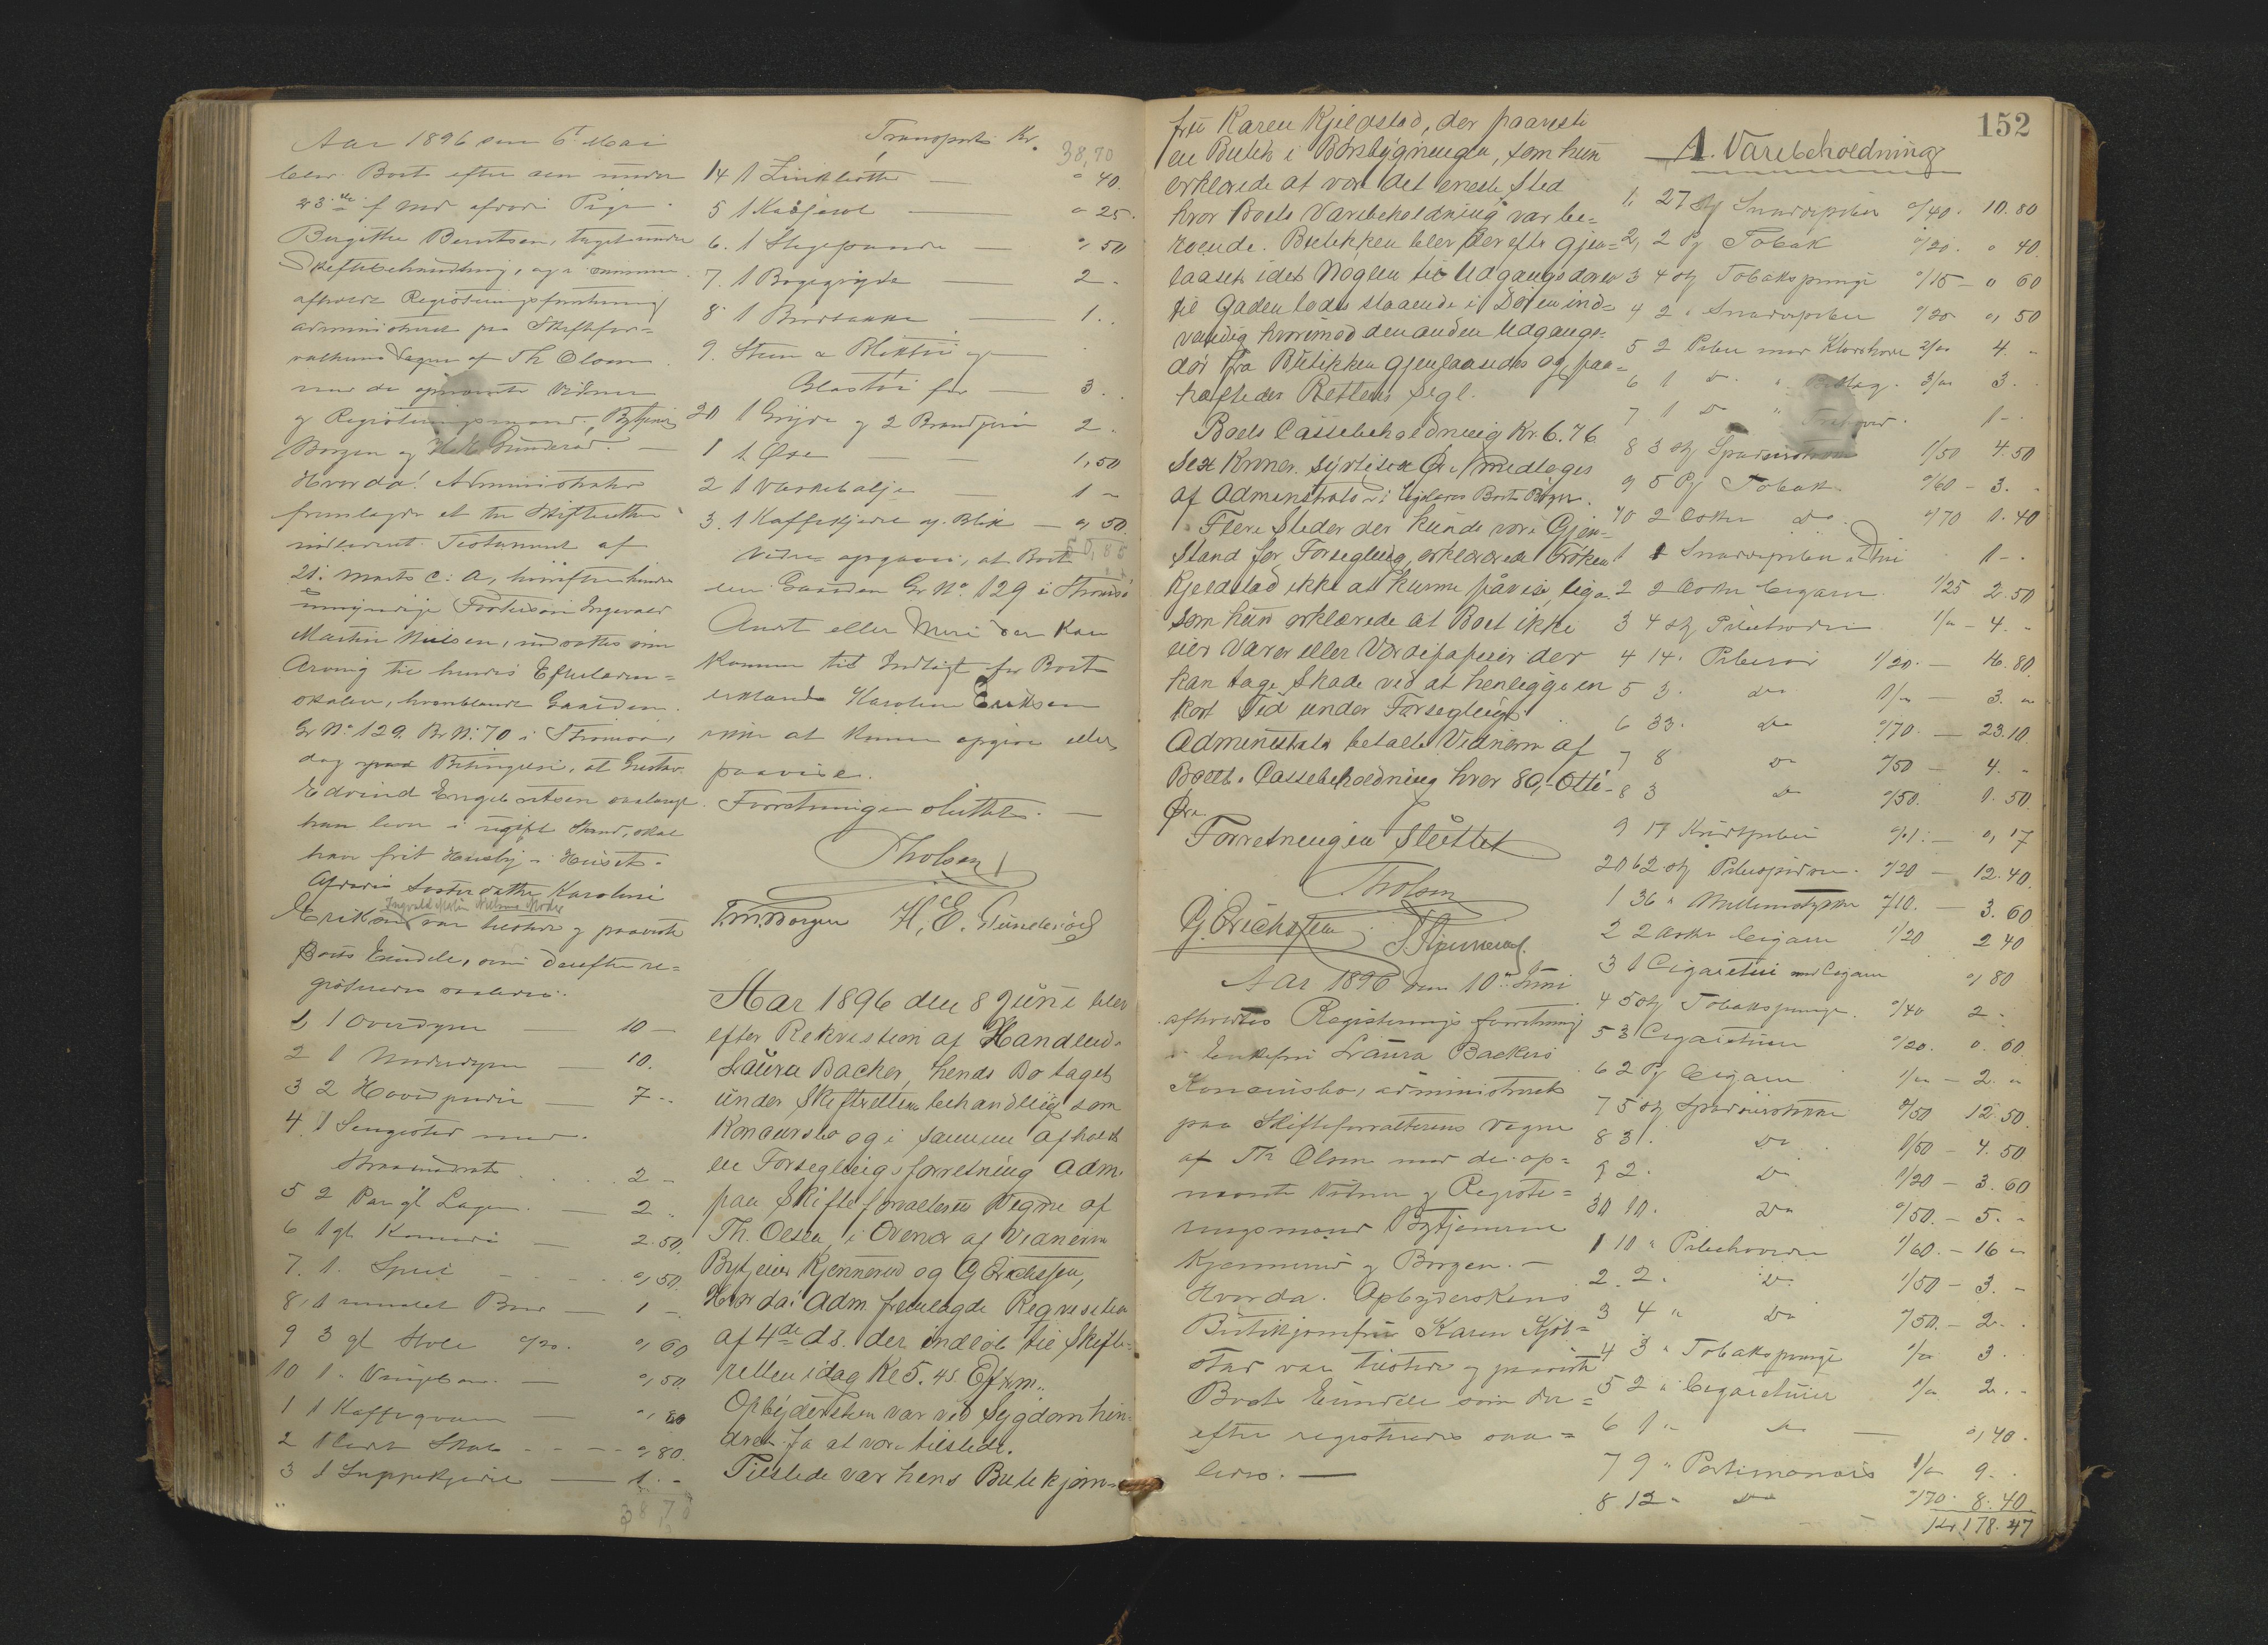 Aar 1896 den 6t Mai
blev Boet efter den under
23de f. Md afdøde Pige
Bergithe Berntsen, taget under
Skiftebehandling, og i samme
afholdt Registreringsforretning
administreret paa Skiftefor=
valterens Vegne af Th Olsen
med de opnævnte Vidner
og Registreringsmænd, Bytjener
Borgen og H. E. Gunderød. —
Hvorda! Administrator
fremlagde et til Skifteretten
indleveret Testament af
21. Marts c: a, hvorefter hendes
umyndige Søstersøn Ingevald
Martin Nielsen, indsættes som
Arving til hendes Efterladen=
skaber, hvoriblandt Gaarden
Gr No 129. Br No: 70 i Tromsø,
dog paa Betingelse, at Gustav
Edvind Engebretsen saalænge
han lever i ugift Stand, skal
have frit Husly i Huset.
Afdødes Søsterdatter Karoline
Ingvald Martin Nielsens Moder
Eriksen var tilstede og paaviste
Boets Eiendele, som derefter re=
gistreredes saaledes:
1, 1 Overdyne — 10 —
2 1 Underdyne — 10.
3 2 Hovedpuder — 7 --
4. 1 Sengested med
Straamadrats . . . . 2 -
5 2 Par gl Lagen. — 2.
6 1 gl. Komode — 2.50.
7. 1. Speil - - - 0,50.
8, 1 umalet Bord — 1 -
9 3 gl Stole 0/20. 0,60
10 1. Vinglas. — 0,50.
1 1 Kaffekværn — 0,80
2 1 lidet Skab - - - 0,80.
3 1 Suppekjedel — 1. -
38 70
Transport Kr. 38,70
14 1 Zinkbøtte — 0 40.
5 1 Kasserol — 0 25.
6. 1 Stegepande — 0, 50
7. 1 Bagegryde — 2 -
8. 1 Brødbakke — 1..
9. Sten & Bliktøi og
Glastøi for — 3..
20 1 Gryde og 2 Brandjern 2.
1 1 Øxe — 1,50
2 1 Vaskebalje — 1 -
3. 1 Kaffekjedel af Blik — 0, 50.
Videre opgaves, at Boet
eier Gaarden Gr No. 129 i Tromsø
Andt eller Mere der kan
komme til Indtægt for Boet
erklærede Karoline Eriksen
ikke at kunne opgive eller
paavise.
Forretningen sluttet. —
Th Olsen
T. M. Borgen H. E. Gunderød
Aar 1896 den 8 Juni blev
efter Rekvisition af Handlende
Laura Backer, hends Bo taget
under Skifterettens behandling som
Koncursbo og i samme afholdt
en Forseglingsforretning adm.
paa Skifteforvalterens Vegne af
Th. Olsen, i Overvær af Vidnerne
Bytjener Kjennerud og G Erichssen,
Hvorda! Adm. fremlagde Reqvisition
af 4de ds. der indløb til Skifte-
retten idag Kl 5. 45 Efterm.
Opbydersken var ved Sygdom hin-
dret fra at være tilstede.
Tilstede var hens Butikjom-
152
fru Karen Kjeldstad, der paaviste
en Butik i Børsbygningen, som hun
erklærede at være det eneste Sted
hvor Boets Varebeholdning var be=
roende. Butikken blev derefter gjen=
laaset idet Nøglen til Udgangsdøren
til Gaden lodes staaende i Døren ind=
vendig hvorimod den anden Udgangs-
dør fra Butikken gjenlaasedes og paa=
hæftedes Rettens Segl.
Boets Cassebeholdning Kr. 6.76
Sex Kroner. syttisex Øre medtoges
af Administrator i Boets Bøger.
Flere Steder der kunde være Gjen-
stand for Forsegling, erklærede Frøken
Kjeldstad ikke at kunne påvise, lige-
som hun erklærede at Boet ikke
eier Varer eller Værdipapirer der
kan tage Skade ved at henligge en
kort Tid under Forsegling.
Administrator betalte Vidnerne af
Boets Cassebeholdning hver 80,- Otti-
Øre
Forretningen Sluttet
Th Olsen
G. Erichssen S. Kjennerud.
Aar 1896 den 10de Juni
afholdtes Registreringsforretning
i Enkefru Laura Backers
Koncursbo, administreret
paa Skifteforvalterens Vegne
af Th Olsen med de op=
nævnte Vidner og Registre=
ringsmænd Bytjenerne
Kjennerud og Borgen. —
Hvorda. Opbyderskens
Butikjomfru Karen Kjel=
stad var tilstede og paaviste
Boets Eiendele som der=
efter registreredes saa=
ledes. —
A. Varebeholdning
1, 27 stk Snadepiber 0/40. 10.80
2, 2 Pk Tobak 0/20. 0 40
3 4 stk Tobakspunge 0/15 - 0 60
4 2 " Snadepiber 0/25 0, 50
5 2 Piber med Klovshoved 2/00 4. -
6 1 Do. " Beslag. 3/00 3..
7 1 Do " Træhoved. 1 -
8 3 stk Spadserstokke 1/50 4.50
9 5 Pk Tobak 0/60 - 3. -
10 2 Æsker Do. 0/70 1.40
1 1 Snadepibe i Etui 1 -.
2 2 Æsker Cigarer 1/25 2.50
3 4 stk Pibehoveder 1/00 - 4. -
4 14. Piberør 1/20. — 16.80
5 3. do 1/00 — 3. -
6 33. Do 0/70. — 23.10
7 8 Do 0/50 — 4. -
8 3 Do 0/50. 1.50
9 17 Kridtpiber 0/01. — 0, 17
20 62 stk Pibespidser. 0/20 - 12.40
1 36 " Mellemstykker 0/10. — 3.60
2 2 Æsker Cigarer 1/20 2 40
3 1 Cigaretui med Cigarer 0, 80
4 5 stk Tobakspunge. 0/40 2 -
5 3 Cigaretuier 0/20. 0. 60
6 2 Pk Cigarer 1/00 - 2. -
7 5 stk Spadserstokke 2/50 12.50.
8 3. Do 1/50 - 4.50
9 2. Do 1/20 - 3.60
30 10. Do 0/50. - 5. -
1 10 " Pibehoveder 1/60. - 16 -
2. 2. Do. 1/50 - 3. -
3 4 " Do 0/50. - 2..
4 3 " Tobakspunge 1/00 3.
5 2 " Cigaretuier 1/00 2. -
6 1 " Do — 0, 40.
7 9 " Portemonæis 1/00 9..
8 12 " Do 0/70. 8.40
Kr 178.47